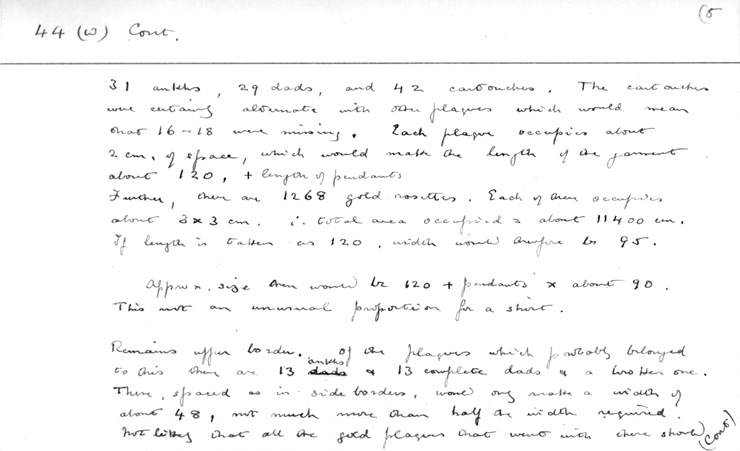 (5
44 (w) Cont.
31 ankhs, 29 dads, and 42 cartouches. The cartouches
were certainly alternate with other plaques which would mean
that 16-18 were missing. Each plaque occupies about
2 cm. of space, which would make the length of the garment
about 120, + length of pendants
Further, there are 1268 gold rosettes. Each of them occupies
about 3 x 3 cm. ∴ total area occupied = about 11400 cm.
If length is taken as 120, width would therefore be 95.
Approx. size then would be 120 + pendants x about 90.
This not an unusual proportion for a shirt.
Remains upper border. Of the plaques which probably belonged
to this there are 13 dads ankhs & 13 complete dads & a broken one.
These, spaced as in side borders, would only make a width of
about 48, not much more than half the width required.
Not likely that all the gold plaques that went with these should
(Cont)